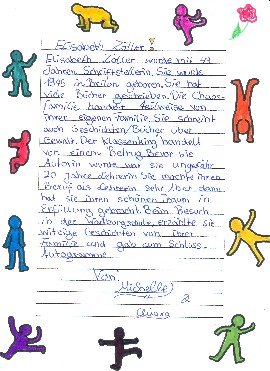 Elisabeth Zöller!
Elisabeth Zöller wurde mit 43
Jahren Schriftstellerin. Sie wurde
1945 in Brilon geboren. Sie hat
viele Bücher geschrieben. Die Chaos-
familie handelt teilweise von
ihrer eigenen Familie. Sie schreibt
auch Geschichten/Bücher über
Gewalt. Der Klassenking handelt
von einem Betrug. Bevor sie
Autorin wurde war sie ungefähr
20 Jahre Lehrerin. Sie mochte ihren
Beruf als Lehrerin sehr, aber dann
hat sie ihren schönen Traum in
Erfüllung gebracht. Beim Besuch
in der Walburgisschule, erzählte sie
witzige Geschichten von ihrer
Familie und gab zum Schluss
Autogramme.
Von
Michelle
&
Chiara